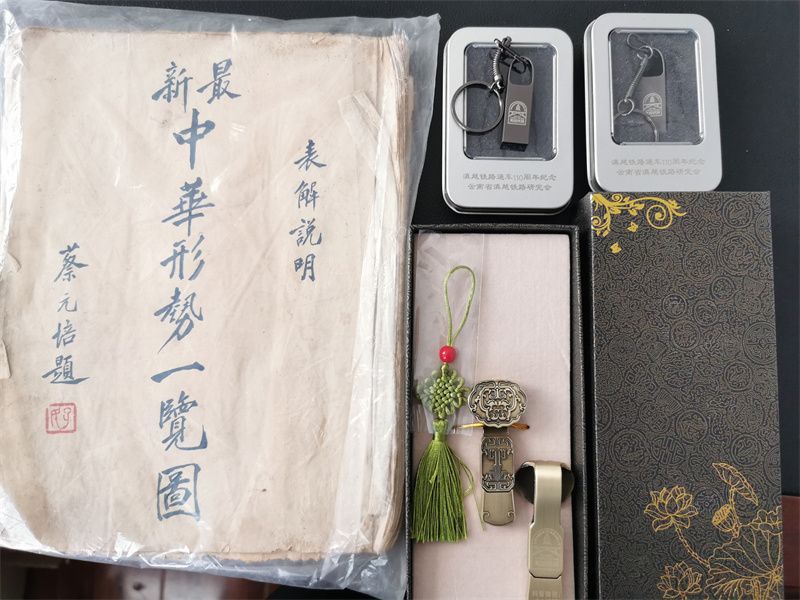 表解說明
最新
中華形勢一覽圖
蔡元培題
滇越铁路通车110周年纪念
云南省滇越铁路研究会
滇越铁路通车110周年纪念
云南省滇越铁路研究会